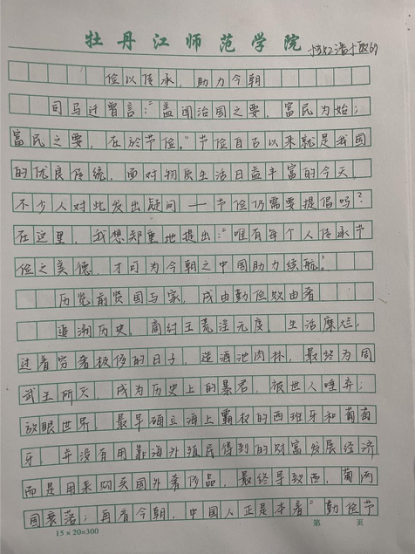 牡丹江师范学院
俭以传承，助力今朝
司马迁曾言：“盖闻治国之要，富民为始；
富民之要，在於节俭。”节俭自古以来就是我国
的优良传统，面对物质生活日益丰富的今天，
不少人对此发出疑问——节俭仍需要提倡吗？
在这里，我想郑重地提出：“唯有每个人传承节
俭之美德，才可为今朝之中国助力续航。”
历览前贤国与家，成由勤俭败由奢
追溯历史，商纣王荒淫无度，生活糜烂，
过着穷奢极侈的日子，造酒池肉林，最终为周
武王所灭，成为历史上的暴君，被世人唾弃；
放眼世界，最早确立海上霸权的西班牙和葡萄
牙，并没有用靠海外殖民得到的财富发展经济
而是用来购买国外奢侈品，最终导致西、葡两
国衰落；再看今朝，中国人正是本着“勤俭节
15×20=300
第 页